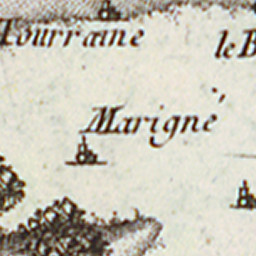 Tourraine
le B
Marigné